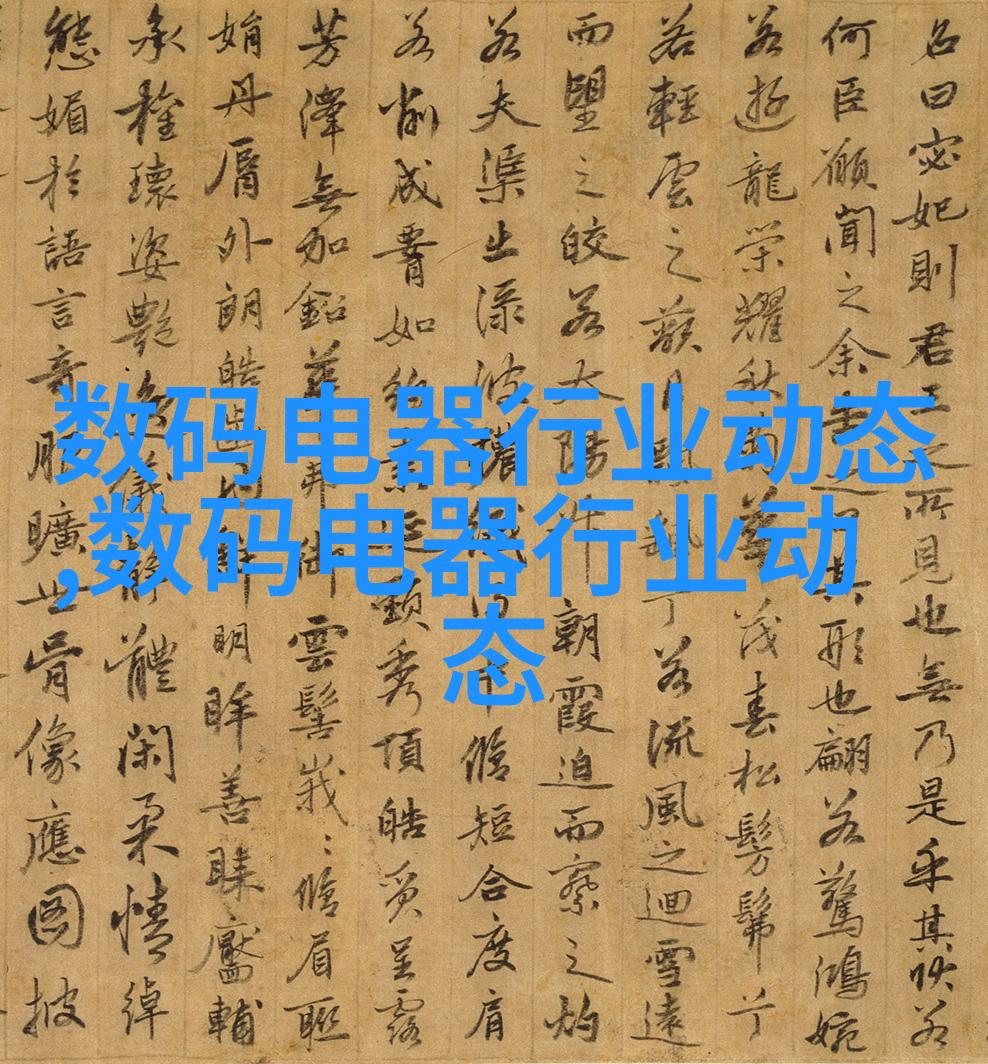 名曰宓妃則君王之所見也無乃是乎其狀若
何臣願聞之余告之曰其形也翩若驚鴻婉
若遊龍榮耀秋菊華茂春松髣髴兮
若輕雲之蔽月飄颻兮若流風之迴雪遠
而望之皎若太陽升朝霞迫而察之灼
若夫渠出淥波襛纖得中脩短合度肩
若削成如約素延頸秀項皓質呈露
芳澤無加鉛華弗御雲髻峩〻脩眉聯
娟丹脣外朗皓齒內鮮明眸善睞靨輔
承權瓌姿艷逸儀靜體閑柔情綽
態媚於語言奇服曠世骨像應圖披
数码电器行业动态
,数码电器行业动
态